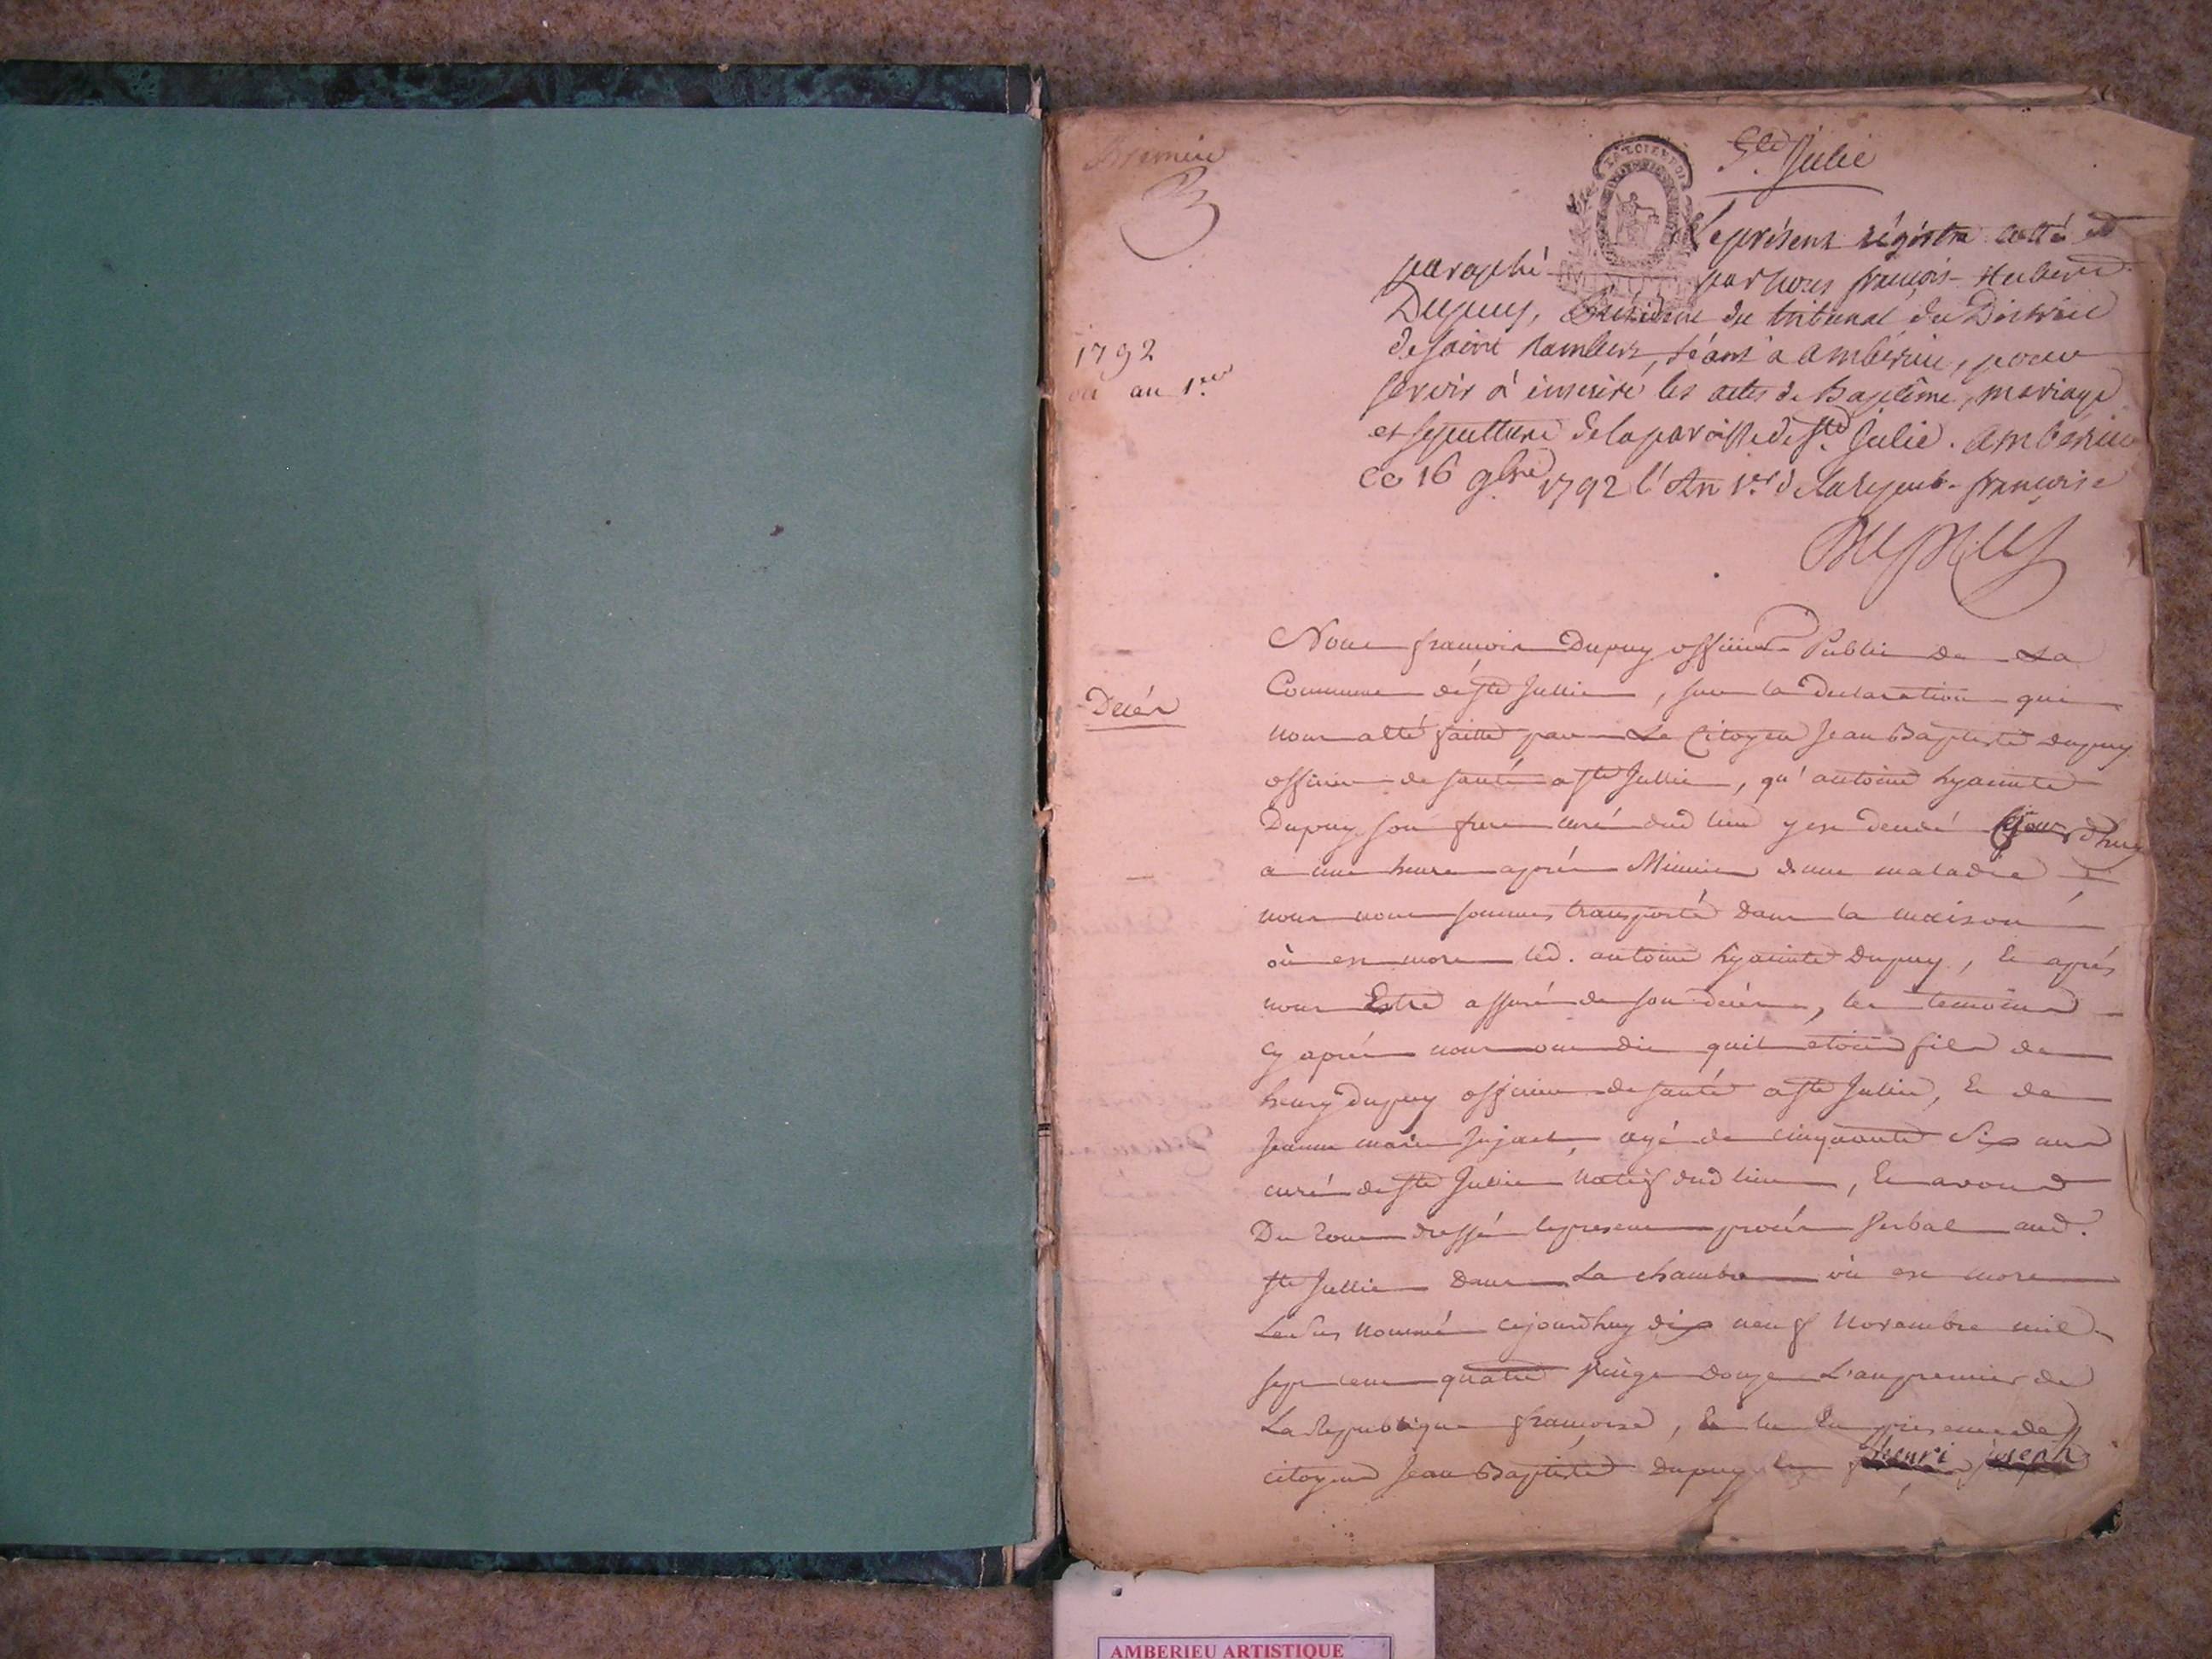 premier
1792
an 1.er
Décés
LA LOI ET LE ROI
Ste. Julie
Le présent régistre cotté et
paraphé par nous françois-Hubert
Dupuy, Président du tribunal du District
de saint Rambert, séant à ambérieu, pour
servir à inscrire les actes de Baptême, mariage
et sepulture de la paroisse de Ste. Julie. ambérieu
ce 16 9bre 1792 l'An 1.er de la repub. françoise
Dupuy
Nous francois Dupuy officier Public de La
Commune de ste Jullie, sur la declaration qui
nous a été faitte par Le Citoyen Jean Baptiste dupuy
officier de santé a ste Jullie, qu'antoine hyacinte
Dupuy son frere curé dud lieu y est decedé cejourdhuy
a une heure aprés Minuit d'une maladie
nous nous sommes transporté dans la maison
où est mort led. antoine hyacinte Dupuy, Et aprés
nous Estre assuré de son décés, les temoins
cy aprés nous ont dit quil etoit fils de
henry Dupuy officier de santé a ste Jullie, Et de
Jeanne marie, agé de cinquante Six ans
curé de ste Jullie Natif dud lieu, Et avons
Du tout dressé le present procés Verbal aud.
ste Jullie Dans La chambre où est mort
Le Sus Nommé cejourdhuy dix neuf Novembre mil
sept cent quatre Vingt douze L'an premier de
La Republique francoise, Et lu En presence des
citoyens Jean Baptiste Dupuy henri joseph
AMBERIEU ARTISTIQUE